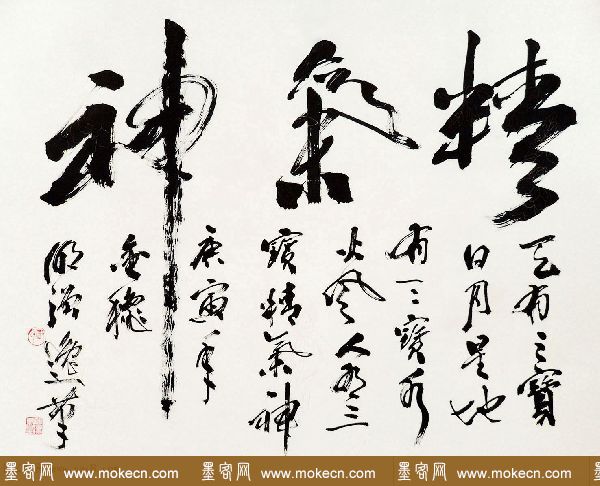 精氣神
天有三寶
日月星地
有三寶水
火風人有三
寶精氣神
庚寅年
金穗
逸筆
墨客网 www.mokecn.com 墨客网 www.mokecn.com 墨客网 www.mokecn.com